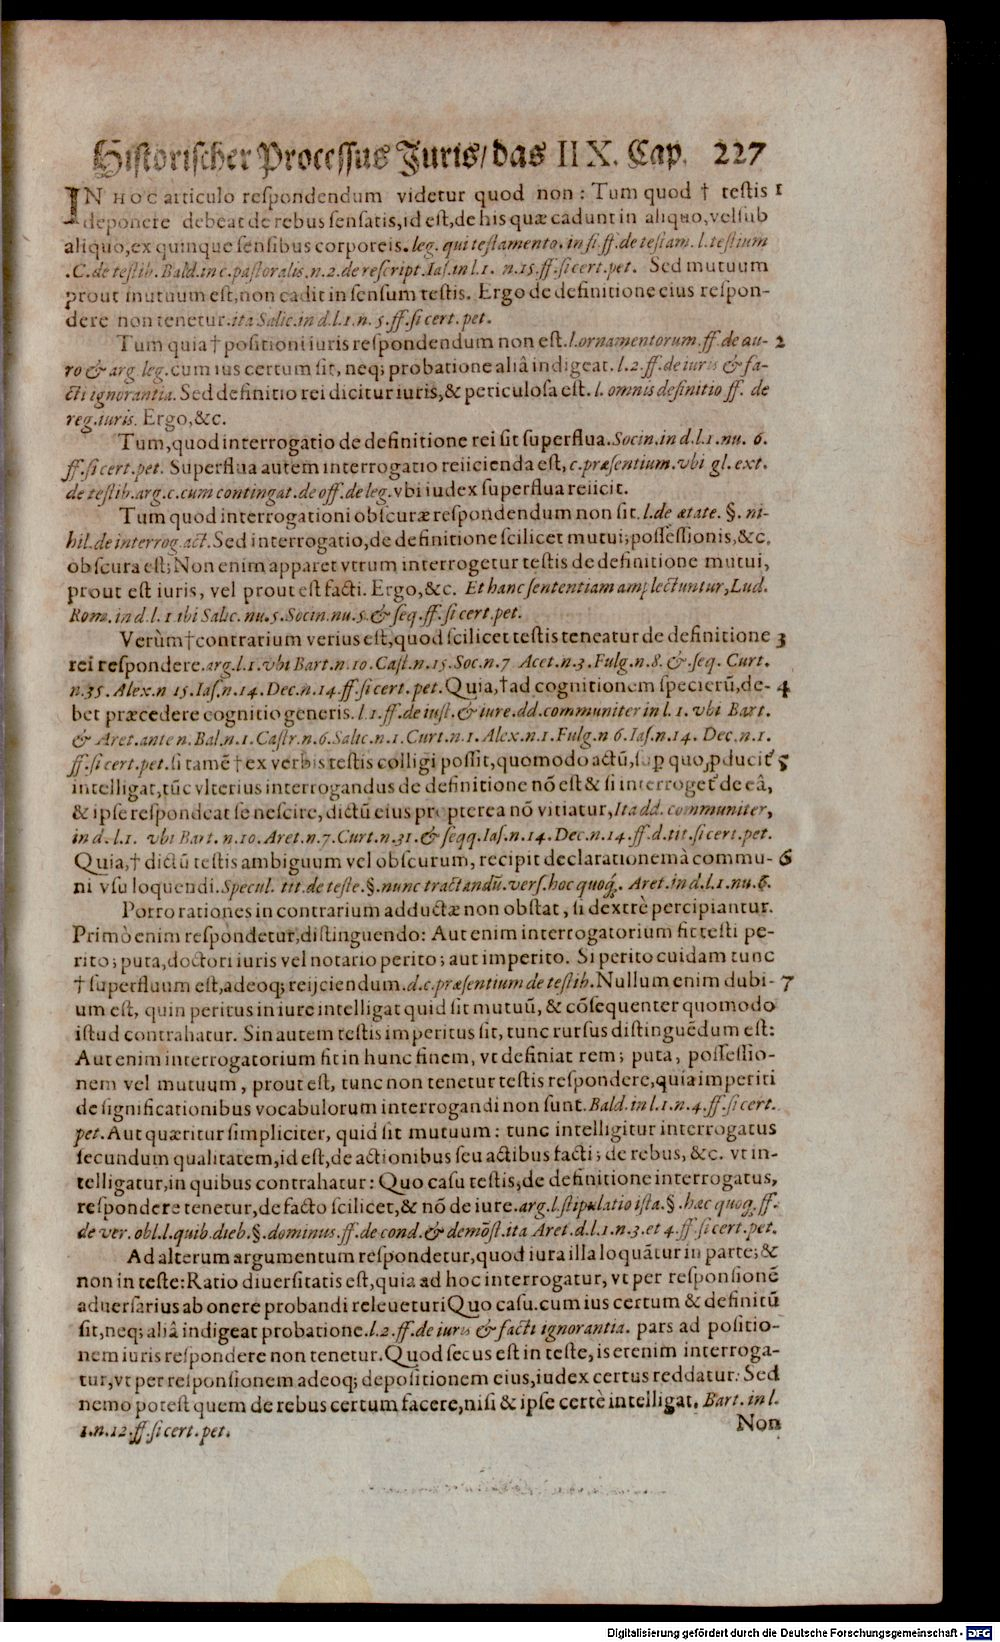 Historischer Processus Juris/ das IIX. Cap. 227
IN HOC articulo respondendum videtur quod non: Tum quod † testis 1
deponere debeat de rebus sensatis, id est, de his quæ cadunt in aliquo, vel sub
aliquo, ex quinque sensibus corporeis. leg. qui testamento. in fi. ff. de testam. l. testium
.C. de testib. Bald. in c. pastoralis. n. 2. de rescript. Ias. in l. 1. n. 15. ff. si cert. pet. Sed mutuum
prout mutuum est, non cadit in sensum testis. Ergo de definitione eius respon-
dere non tenetur. ita Salic. in d. l. 1. n. 5. ff. si cert. pet.
Tum quia † positioni iuris respondendum non est. l. ornamentorum. ff. de au- 2
ro & arg. leg. cum ius certum sit, neq; probatione aliâ indigeat. l. 2. ff. de iuris & fa-
cti ignorantia. Sed definitio rei dicitur iuris, & periculosa est. l. omnis definitio ff. de
reg. iuris. Ergo, &c.
Tum, quod interrogatio de definitione rei sit superflua. Socin. in d. l. 1. nu. 6.
ff. si cert. pet. Superflua autem interrogatio reiicienda est, c. præsentium. vbi gl. ext.
de testib. arg. c. cum contingat. de off. de leg. vbi iudex superflua reiicit.
Tum quod interrogationi obscuræ respondendum non sit. l. de ætate. §. ni-
hil. de interrog. act. Sed interrogatio, de definitione scilicet mutui; possessionis, &c.
obscura est; Non enim apparet vtrum interrogetur testis de definitione mutui,
prout est iuris, vel prout est facti. Ergo, &c. Et hanc sententiam amplectuntur, Lud.
Rom. in d. l. 1 ibi Salic. nu. 5. Socin. nu. 5. & seq. ff. si cert. pet.
Verùm † contrarium verius est, quod scilicet testis teneatur de definitione 3
rei respondere. arg. l. 1. vbi Bart. n. 10. Cast. n. 15. Soc. n. 7 Acet. n. 3. Fulg. n. 8. & seq. Curt.
n. 35. Alex. n 15. Ias. n. 14. Dec. n. 14. ff. si cert. pet. Quia, † ad cognitionem specierũ, de- 4
bet præcedere cognitio generis. l. 1. ff. de iust. & iure. dd. communiter in l. 1. vbi Bart.
& Aret. ante n. Bal. n. 1. Castr. n. 6. Salic. n. 1. Curt. n. 1. Alex. n. 1. Fulg. n 6. Ias. n. 14. Dec. n. 1.
ff. si cert. pet. si tamẽ † ex verbis testis colligi possit, quomodo actũ, sup̱ quo ꝓducit' 5
intelligat, tũc vlterius interrogandus de definitione nõ est & si interroget' de eâ,
& ipse respondeat se nescire, dictũ eius propterea nõ vitiatur, Ita dd. communiter,
in d. l. 1. vbi Bart. n. 10. Aret. n. 7. Curt. n. 31. & seqq. Ias. n. 14. Dec. n. 14. ff. d. tit. si cert. pet.
Quia, † dictũ testis ambiguum vel obscurum, recipit declarationem à commu- 6
ni vsu loquendi. Specul. tit. de teste. §. nunc tractandũ. vers. hoc quoq;. Aret. in d. l. 1. nu. 6.
Porro rationes in contrarium adductæ non obstat, si dextrè percipiantur.
Primò enim respondetur, distinguendo: Aut enim interrogatorium fit testi pe-
rito; puta, doctori iuris vel notario perito; aut imperito. Si perito cuidam tunc
† superfluum est, adeoq; reijciendum. d. c. præsentium de testib. Nullum enim dubi- 7
um est, quin peritus in iure intelligat quid sit mutuũ, & cõsequenter quomodo
istud contrahatur. Sin autem testis imperitus sit, tunc rursus distinguẽdum est:
Aut enim interrogatorium fit in hunc finem, vt definiat rem; puta, possessio-
nem vel mutuum, prout est, tunc non tenetur testis respondere, quia imperiti
de significationibus vocabulorum interrogandi non sunt. Bald. in l. 1. n. 4. ff. si cert.
pet. Aut quæritur simpliciter, quid sit mutuum: tunc intelligitur interrogatus
secundum qualitatem, id est, de actionibus seu actibus facti; de rebus, &c. vt in-
telligatur, in quibus contrahatur: Quo casu testis, de definitione interrogatus,
respondere tenetur, de facto scilicet, & nõ de iure. arg. l. stipulatio ista. §. hac quoq; ff.
de ver. obl. l. quib. dieb. §. dominus. ff. de cond. & demõst. ita Aret. d. l. 1. n. 3. et 4. ff. si cert. pet.
Ad alterum argumentum respondetur, quod iura illa loquãtur in parte; &
non in teste: Ratio diuersitatis est, quia ad hoc interrogatur, vt per responsionẽ
aduersarius ab onere probandi releuetur: Quo casu. cum ius certum & definitũ
sit, neq; aliâ indigeat probatione. l. 2. ff. de iuris & facti ignorantia. pars ad positio-
nem iuris respondere non tenetur. Quod secus est in teste, is etenim interroga-
tur, vt per responsionem adeoq; depositionem eius, iudex certus reddatur: Sed
nemo potest quem de rebus certum facere, nisi & ipse certè intelligat. Bart. in l.
1. n. 12. ff. si cert. pet.
Non
Digitalisierung gefördert durch die Deutsche Forschungsgemeinschaft - DFG